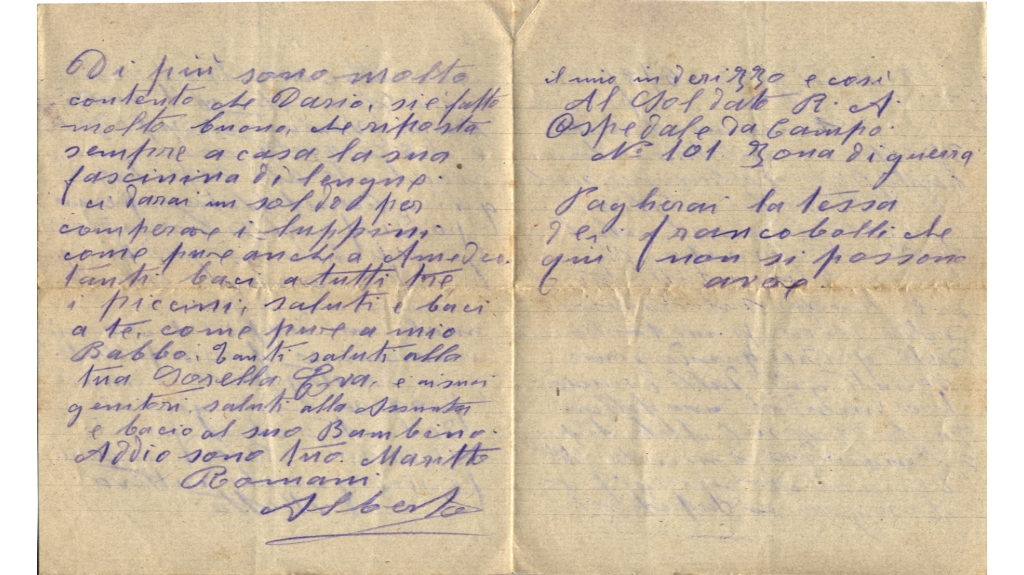 Di più sono molto
contento che Dario, si e fatto
molto buono, che riposta
sempre a casa la sua
fascinina di lengne.
ci darai un soldo per
comperare i luppini.
come pure anche a Amedeo.
tanti baci a tutti tre
i piccini, saluti e baci
a te, come pure a mio
Babbo. Tanti saluti alla
tua Sorella Erva, e ai suoi
genitori, saluti alla Assunta
e bacio al suo Bambino.
Addio sono tuo Maritto
Romani
Alberto
il mio inderizzo e cosi
Al Soldato R. A.
Ospedale da Campo.
No 101 Zona di guerra
Pagherai la tessa
dei francobolli che
qui non si possono
avere.